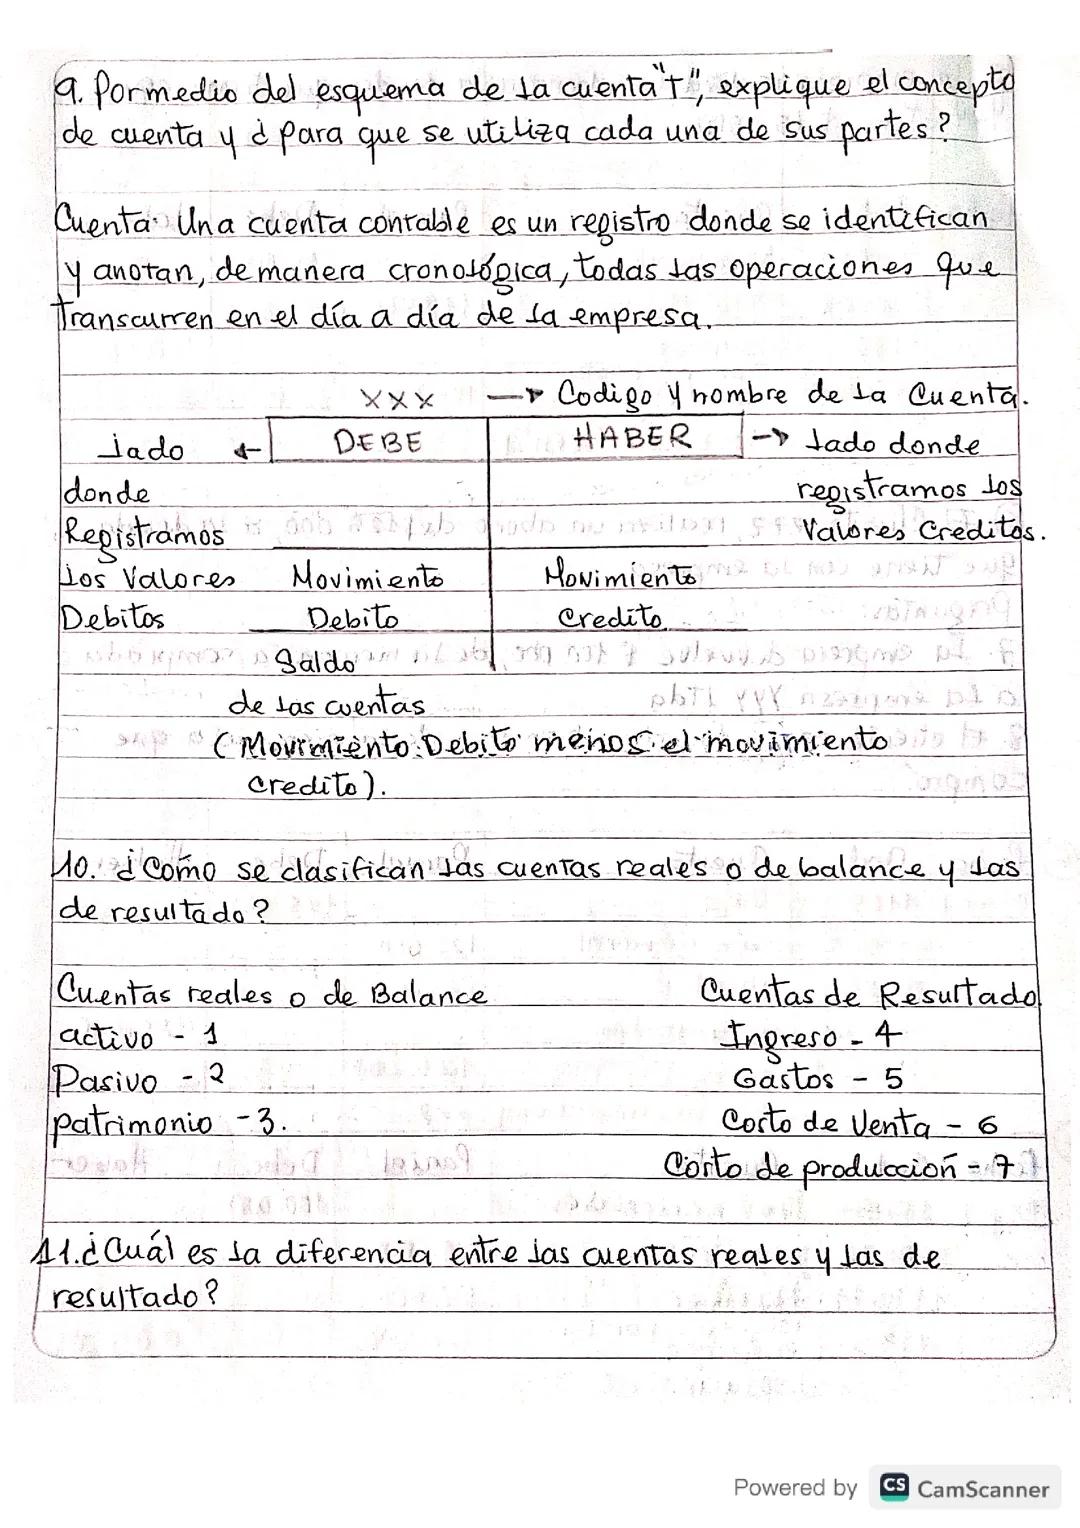 9. Por medio del esquema de la cuenta "T", explique el concepto
de cuenta y ¿Para que se utiliza cada una de sus partes?
Cuenta: Una cuenta contable es un registro donde se identifican
y anotan, de manera cronológica, todas las operaciones que
Transcurren en el día a día de la empresa.
XXX → Codigo y nombre de la Cuenta.
lado ← DEBE HABER → lado donde
donde registramos los
Registramos Valores Creditos.
los Valores Movimiento Movimiento
Debitos Debito Credito
Saldo
de las cuentas
(Movimiento Debito menos el movimiento
credito).
10. ¿Como se clasifican las cuentas reales o de balance y las
de resultado?
Cuentas reales o de Balance Cuentas de Resultado
activo - 1 Ingreso - 4
Pasivo - 2 Gastos - 5
patrimonio - 3. Costo de Venta - 6
Costo de producción - 7
11. ¿Cuál es la diferencia entre las cuentas reales y las de
resultado?
Powered by CS CamScanner